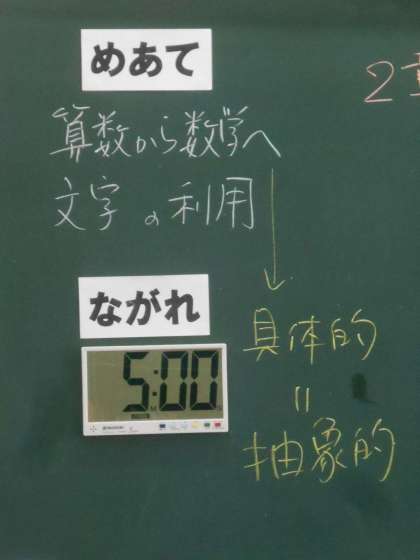 めあて
2
算数から数学へ
文字の利用
ながれ
5:00
具体的
〃
抽象的